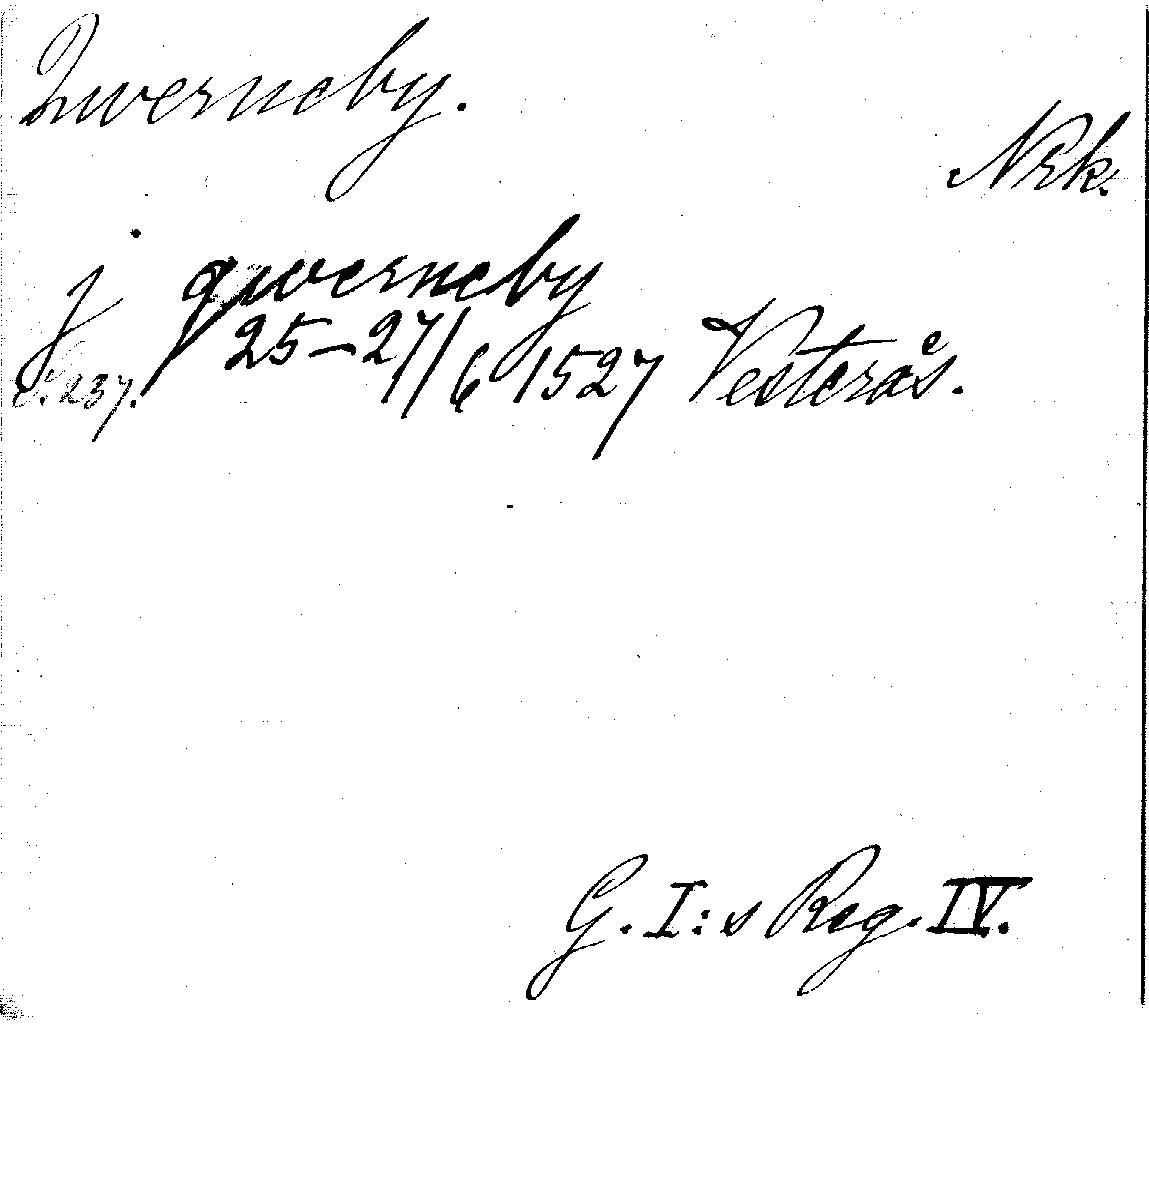 Qwerneby.
Nrk.
j qwerneby
s. 237. 25-27/6 1527 Vesterås.
G. I:s Reg. IV.